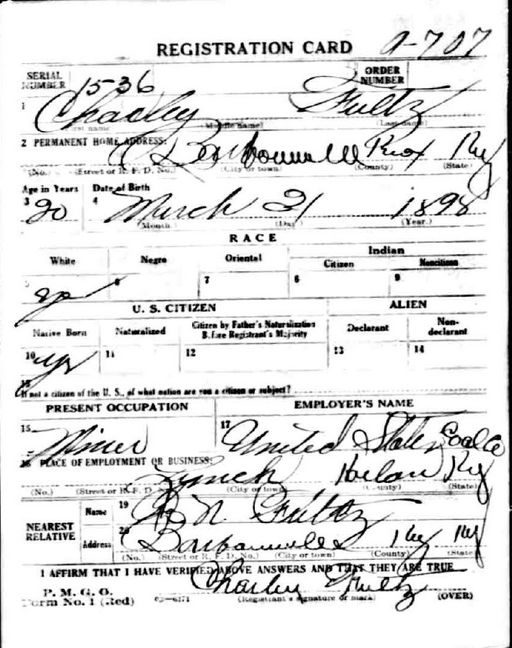 REGISTRATION CARD A-707
SERIAL NUMBER 1536 ORDER NUMBER
1 Charley Fultz
(First name) (Middle name) (Last name)
2 PERMANENT HOME ADDRESS: Barbourville Knox Ky
(No.) (Street or R. F. D. No.) (City or town) (County) (State)
Age in Years Date of Birth
3 20 4 March 21 1898
(Month.) (Day.) (Year.)
RACE
White Negro Oriental Indian
Citizen Noncitizen
5 6 7 8 9
U. S. CITIZEN ALIEN
Native Born Naturalized Citizen by Father's Naturalization Before Registrant's Majority Declarant Non-declarant
10 yes 11 12 13 14
15
If not a citizen of the U. S., of what nation are you a citizen or subject?
PRESENT OCCUPATION EMPLOYER'S NAME
16 Miner 17 United States Coal Co
18 PLACE OF EMPLOYMENT OR BUSINESS: Lynch Harlan Ky
(No.) (Street or R. F. D. No.) (City or town) (County) (State)
NEAREST RELATIVE Name 19 Fultz
Address 20 Barbourville Ky Ky
(No.) (Street or R. F. D. No.) (City or town) (County) (State)
I AFFIRM THAT I HAVE VERIFIED ABOVE ANSWERS AND THAT THEY ARE TRUE
Charley Fultz
P. M. G. O.
Form No. 1 (Red) (Registrant's signature or mark) (OVER)